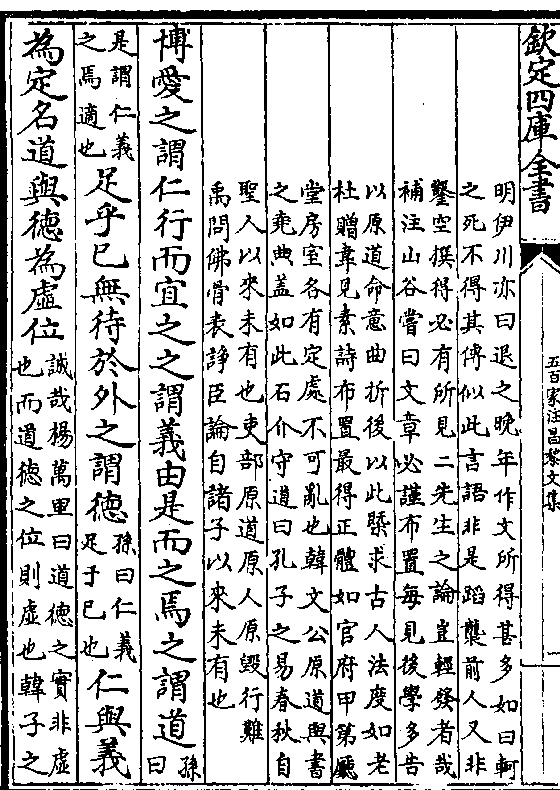 欽定四庫全書
五百家注昌黎文集
明伊川亦曰退之晚年作文所得甚多如曰軻
之死不得其傳似此言語非是蹈襲前人又非
鑿空撰得必有所見二先生之論豈輕發者哉
補注山谷嘗曰文章必謹布置每見後學多告
以原道命意曲折後以此槩求古人法度如老
杜贈韋見素詩布置最得正體如官府甲第廳
堂房室各有定處不可亂也韓文公原道與書
之堯典盖如此石介守道曰孔子之易春秋自
聖人以來未有也吏部原道原人原毀行難
禹問佛骨表諍臣論自諸子以來未有也
博愛之謂仁行而宜之之謂義由是而之焉之謂道孫曰
是謂仁義之焉適也足乎已無待於外之謂德孫曰仁義足于已也仁與義
為定名道與德為虛位誠哉楊萬里曰道德之實非虛也而道德之位則虛也韓子之